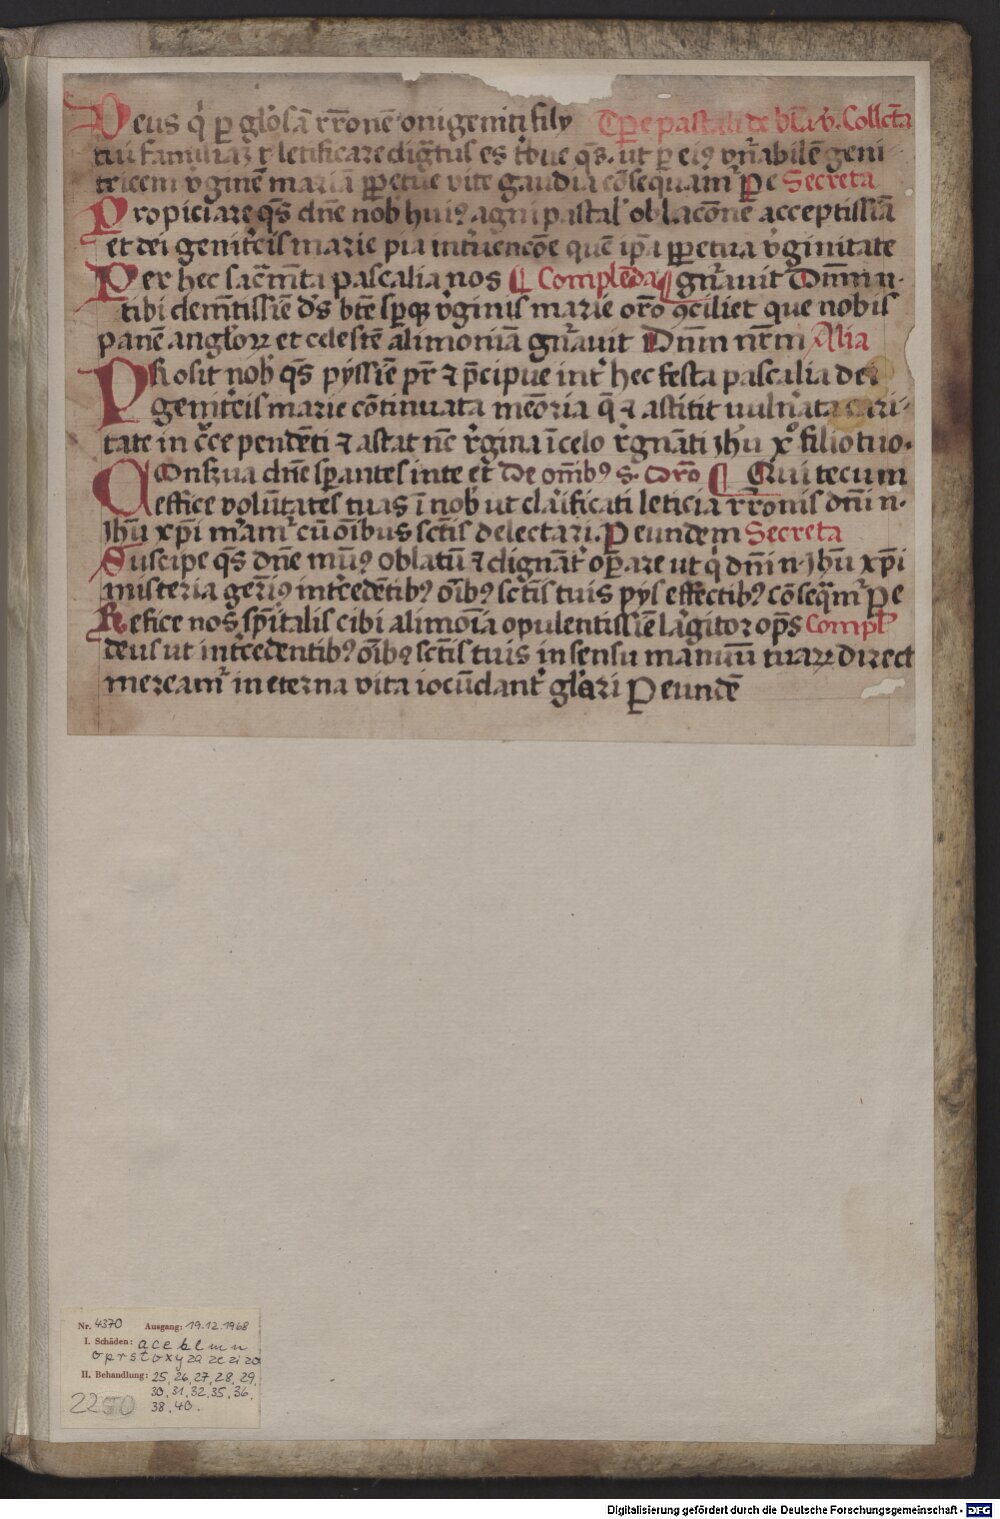 Deus q' p gl'osā rr̄onē onigeniti filij Tp̄e pascali de b̄ta v. Collc̄ta
tui familiaꝫ t̄ letificare dig̅tus es t'bue qs̄. ut p eiꝰ vn̄abilē geni
tricem v'ginē mariā ꝑpetue vite gaudia cōsequam' Pe Secreta
Propiciare qs̄ dn̄e nob huiꝰ agni pascal' oblac̄onē acceptissīā
et dei genit'cis marie pia int'uenc̄oē quē ip̄a ꝑpetua v'ginitate
Per hec sac̄m̄ta pascalia nos ¶ Complēda ¶ gn̄auit Dn̄m n.
tibi clem̄tissiē ds̄ bt̄e sp̄ qꝫ v'ginis marie or̄o ꝯciliet que nobis
panē anglōrꝝ et celestē alimoniā gn̄auit Dn̄m nr̄m Alia
Prosit nob qs̄ pyssīe pr̄ ⁊ p̄cipue int' hec festa pascalia dei
genit'cis marie cōtinuata mēoria q̄ ⁊ astitit uuln̄ata cari-
tate in c̄ce pendēti ⁊ astat nc̄ r'gina ī celo r'gnāti Jhū xº filio tuo.
Conꝫua dn̄e sp̄antes in te et De om̄ibꝰ s. Or̄o ¶ Qui tecum
effice volūtates tuas ī nob ut clarificati leticia rr̄onis dn̄i n.
Jhū xp̄i m'am' cū oībus sc̄tis delectari. P eundem Secreta
Suscipe qs̄ dn̄e mūꝰ oblatū ⁊ dignāt' op̄are ut q' dn̄i n. Jhū xp̄i
misteria ger̄iꝰ int'cedētibꝰ oībꝰ sc̄tis tuis pys effectibꝰ cōseq̄m' Pe
Refice nos sp̄italis cibi alimoīa opulentissīe la'gitor op̄s Compl'
deus ut int'cedentibꝰ oībꝰ sc̄tis tuis in sensu manuū tuarꝝ direct
meream' in eterna vita iocūdant' gl'ari P eundē
Nr. 4370 Ausgang: 19.12.1968
I. Schäden: a c e k l m n
o p r s t v x y za ze zi zo
II. Behandlung: 25, 26, 27, 28, 29,
30, 31, 32, 35, 36,
38, 40.
2250
Digitalisierung gefördert durch die Deutsche Forschungsgemeinschaft - DFG